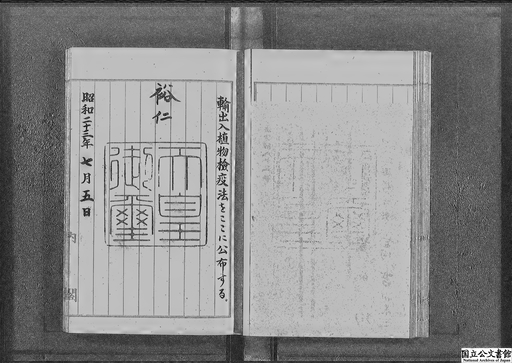 輸出入植物檢疫法をここに公布する。
裕仁
天皇
御璽
昭和二十三年七月五日
内閣
国立公文書館
National Archives of Japan